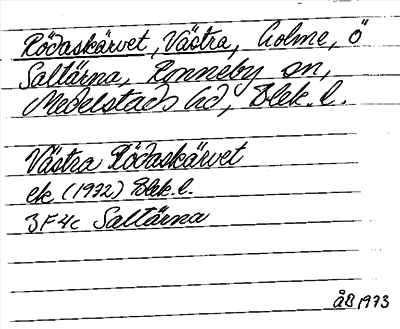 Rödaskärvet, Västra, holme, ö
Saltärna, Ronneby sn,
Medelstads hd, Blek. l.
Västra Rödaskärvet
ek (1972) Blek. l.
3F4c Saltärna
åB 1973